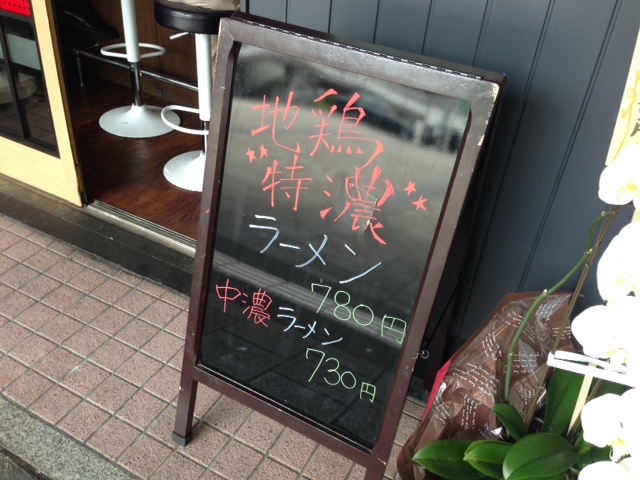 地鶏
特濃
ラーメン
780円
中濃ラーメン
730円